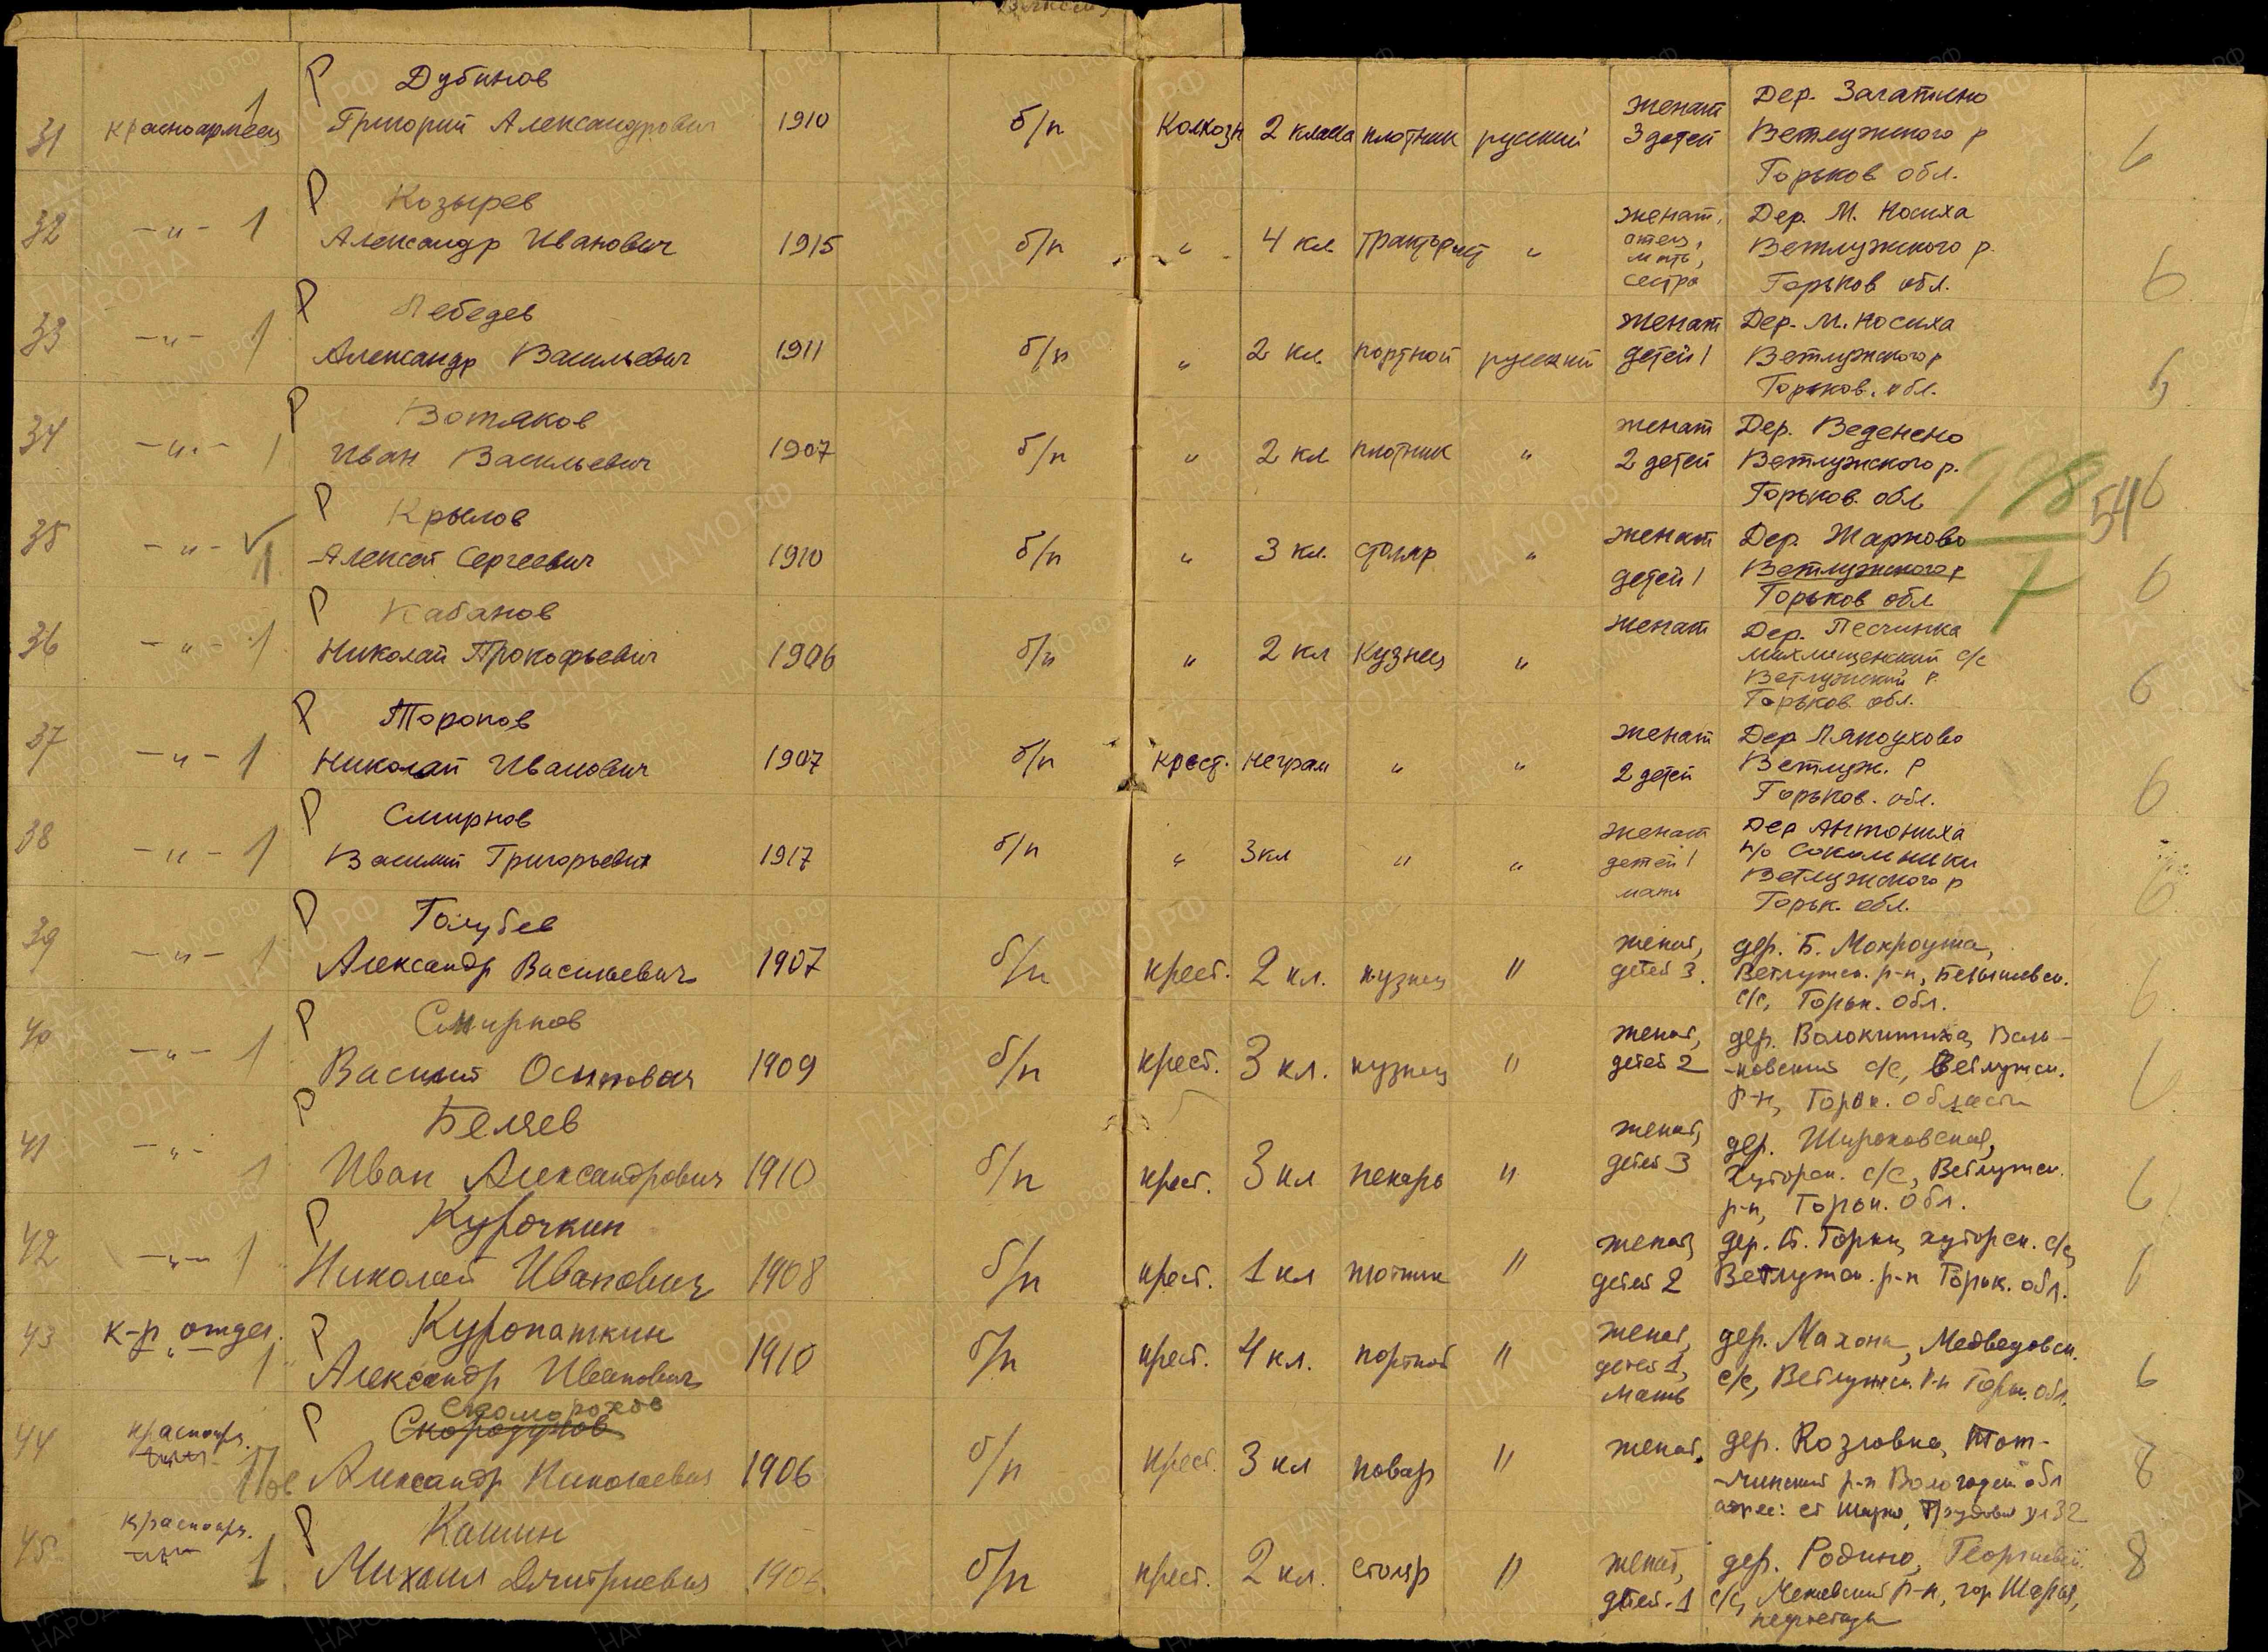 Дубинов
31 красноармеец 1 Григорий Александрович 1910 б/п Колхозн 2 класса плотник русский женат 3 детей Дер. Загатино
Ветлужского р
Горьков обл. 6
Козырев
32 -"- 1 Александр Иванович 1915 б/п " 4 кл тракторист " женат, отец, мать, сестра Дер. М. Носиха
Ветлужского р.
Горьков обл. 6
Лебедев
33 -"- 1 Александр Васильевич 1911 б/п " 2 кл портной русский женат детей 1 Дер. М. Носиха
Ветлужского р
Горьков. обл. 6
Вотяков
34 -"- 1 Иван Васильевич 1907 б/п " 2 кл плотник " женат 2 детей Дер. Веденено
Ветлужского р.
Горьков. обл 6
54
Крылов
35 -"- 1 Алексей Сергеевич 1910 б/п " 3 кл. столяр " женат детей 1 Дер. Жарково
Ветлужского р
Горьков обл 6
Кабанов
36 -"- 1 Николай Прокофьевич 1906 б/п " 2 кл Кузнец " женат Дер. Песчинка
с/с
Ветлужский р.
Горьков. обл. 6
Торопов
37 -"- 1 Николай Иванович 1907 б/п крест. неграм " " женат 2 детей Дер
Ветлуж. р
Горьков. обл. 6
Смирнов
38 -"- 1 Василий Григорьевич 1917 б/п " 3 кл " " женат детей 1 мать Дер Антониха
п/о Сокольники
Ветлужского р
Горьк. обл. 6
Голубев
39 -"- 1 Александр Васильевич 1907 б/п крест. 2 кл. кузнец " женат, детей 3. дер. Б. Мокроуша,
Ветлужск. р-н,
с/с, Горьк. обл. 6
Смирнов
40 -"- 1 Василий Осипович 1909 б/п крест. 3 кл. кузнец " женат, детей 2 дер. Волокитиха, Воль-
-новский с/с, Ветлужск.
р-н, Горьк. области 6
Беляев
41 -"- 1 Иван Александрович 1910 б/п крест. 3 кл пекарь " женат, детей 3 дер. Широковская,
Хуторск. с/с, Ветлужск.
р-н, Горьк. обл. 6
Курочкин
42 -"- 1 Николай Иванович 1908 б/п крест. 1 кл плотник " женат, детей 2 дер. Б. Горки, хуторск. с/с,
Ветлужск. р-н Горьк. обл. 6
Куропаткин
43 к-р отдел. 1 Александр Иванович 1910 б/п крест. 4 кл. портной " женат, детей 1, мать дер. Махони, Медведовск.
с/с, Ветлужск. р-н Горьк. обл. 6
Скоморохов
Скородумов
44 красноарм. Александр Николаевич 1906 б/п крест. 3 кл повар " женат. дер. Козловка, Тот-
р-н Вологодск обл
адрес: ст Шарья, Трудовая ул 32 8
Кашин
45 красноарм. 1 Михаил Дмитриевич 1906 б/п крест. 2 кл. столяр " женат, детей-1 дер. Родино, Георгиевск.
с/с, р-н, гор Шарья, 8